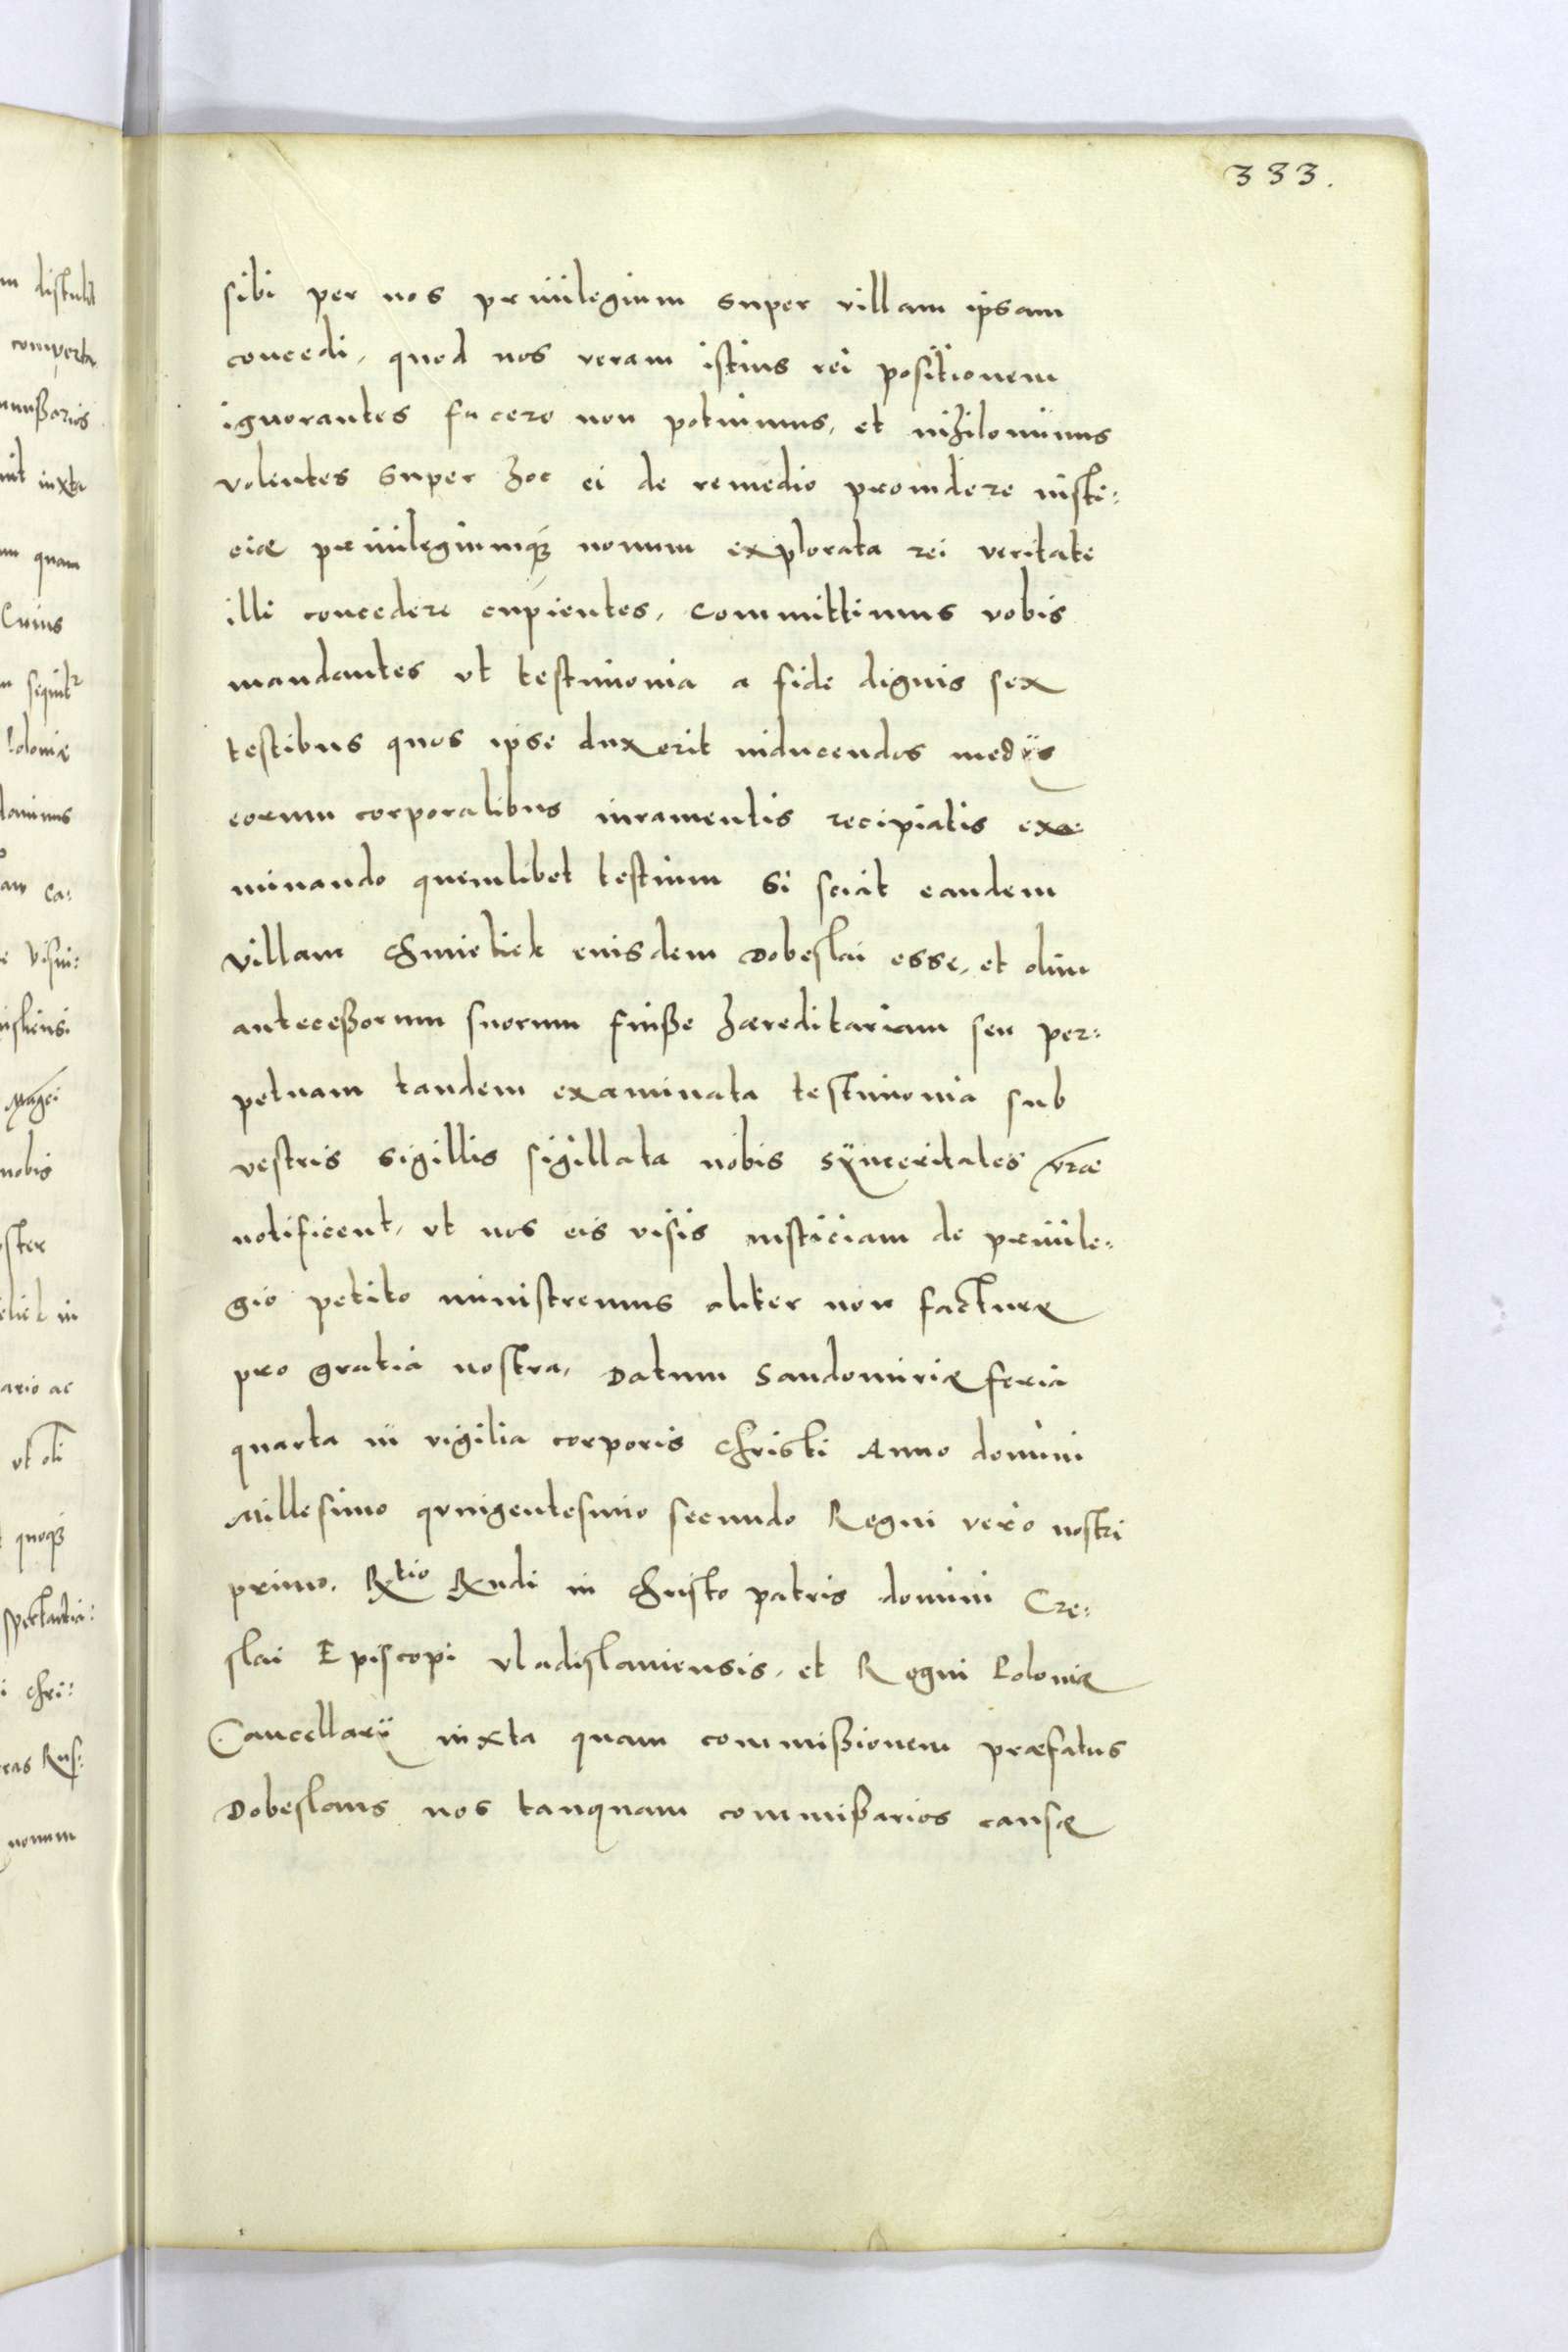 333.
sibi per nos priuilegium super villam ipsam
concedi, quod nos veram istius rei positionem
ignorantes facere non potuimus, et nihilominus
volentes super hoc ei de remedio prouidere iusti:
ciæ priuilegiumq&#x301; nouum explorata rei veritate
illi concedere cupientes, Committimus vobis
mandantes vt testimonia a fide dignis sex
testibus quos ipse duxerit inducendos medijs
eorum corporalibus iuramentis recipiatis exa:
minando quemlibet testium Si sciat eandem
villam Chmieliek eiusdem Dobeslai esse, et olim
anteceßorum suorum fuiße hæreditariam seu per:
petuam tandem examinata testimonia sub
vestris sigillis sigillata nobis sÿnceritates vræ
notificent, vt nos eis visis iusticiam de priuile:
gio petito ministremus aliter non facturæ
pro gratia nostra, Datum Sandomiriæ feria
quarta in vigilia corporis Christi Anno domini
Millesimo quingentesimo secundo Regni vero nostri
primo. Rtio Rndi in Christo patris domini Cre:
slai Episcopi Vladislauiensis, et Regni Poloniæ
Cancellarij iuxta quam commißionem præfatus
Dobeslaus nos tanquam commißarios causæ
m distulit
comperta
mmißarios
nit iuxta
m quam
Cuius
n sequitr
loloniæ
dominus
am Ca:
e Visni:
nisliensi
Magci
nobis
oster
eliek in
ario ac
vt oli
quoq&#x301;
spectantia:
i Chri:
ras Rus:
nouum